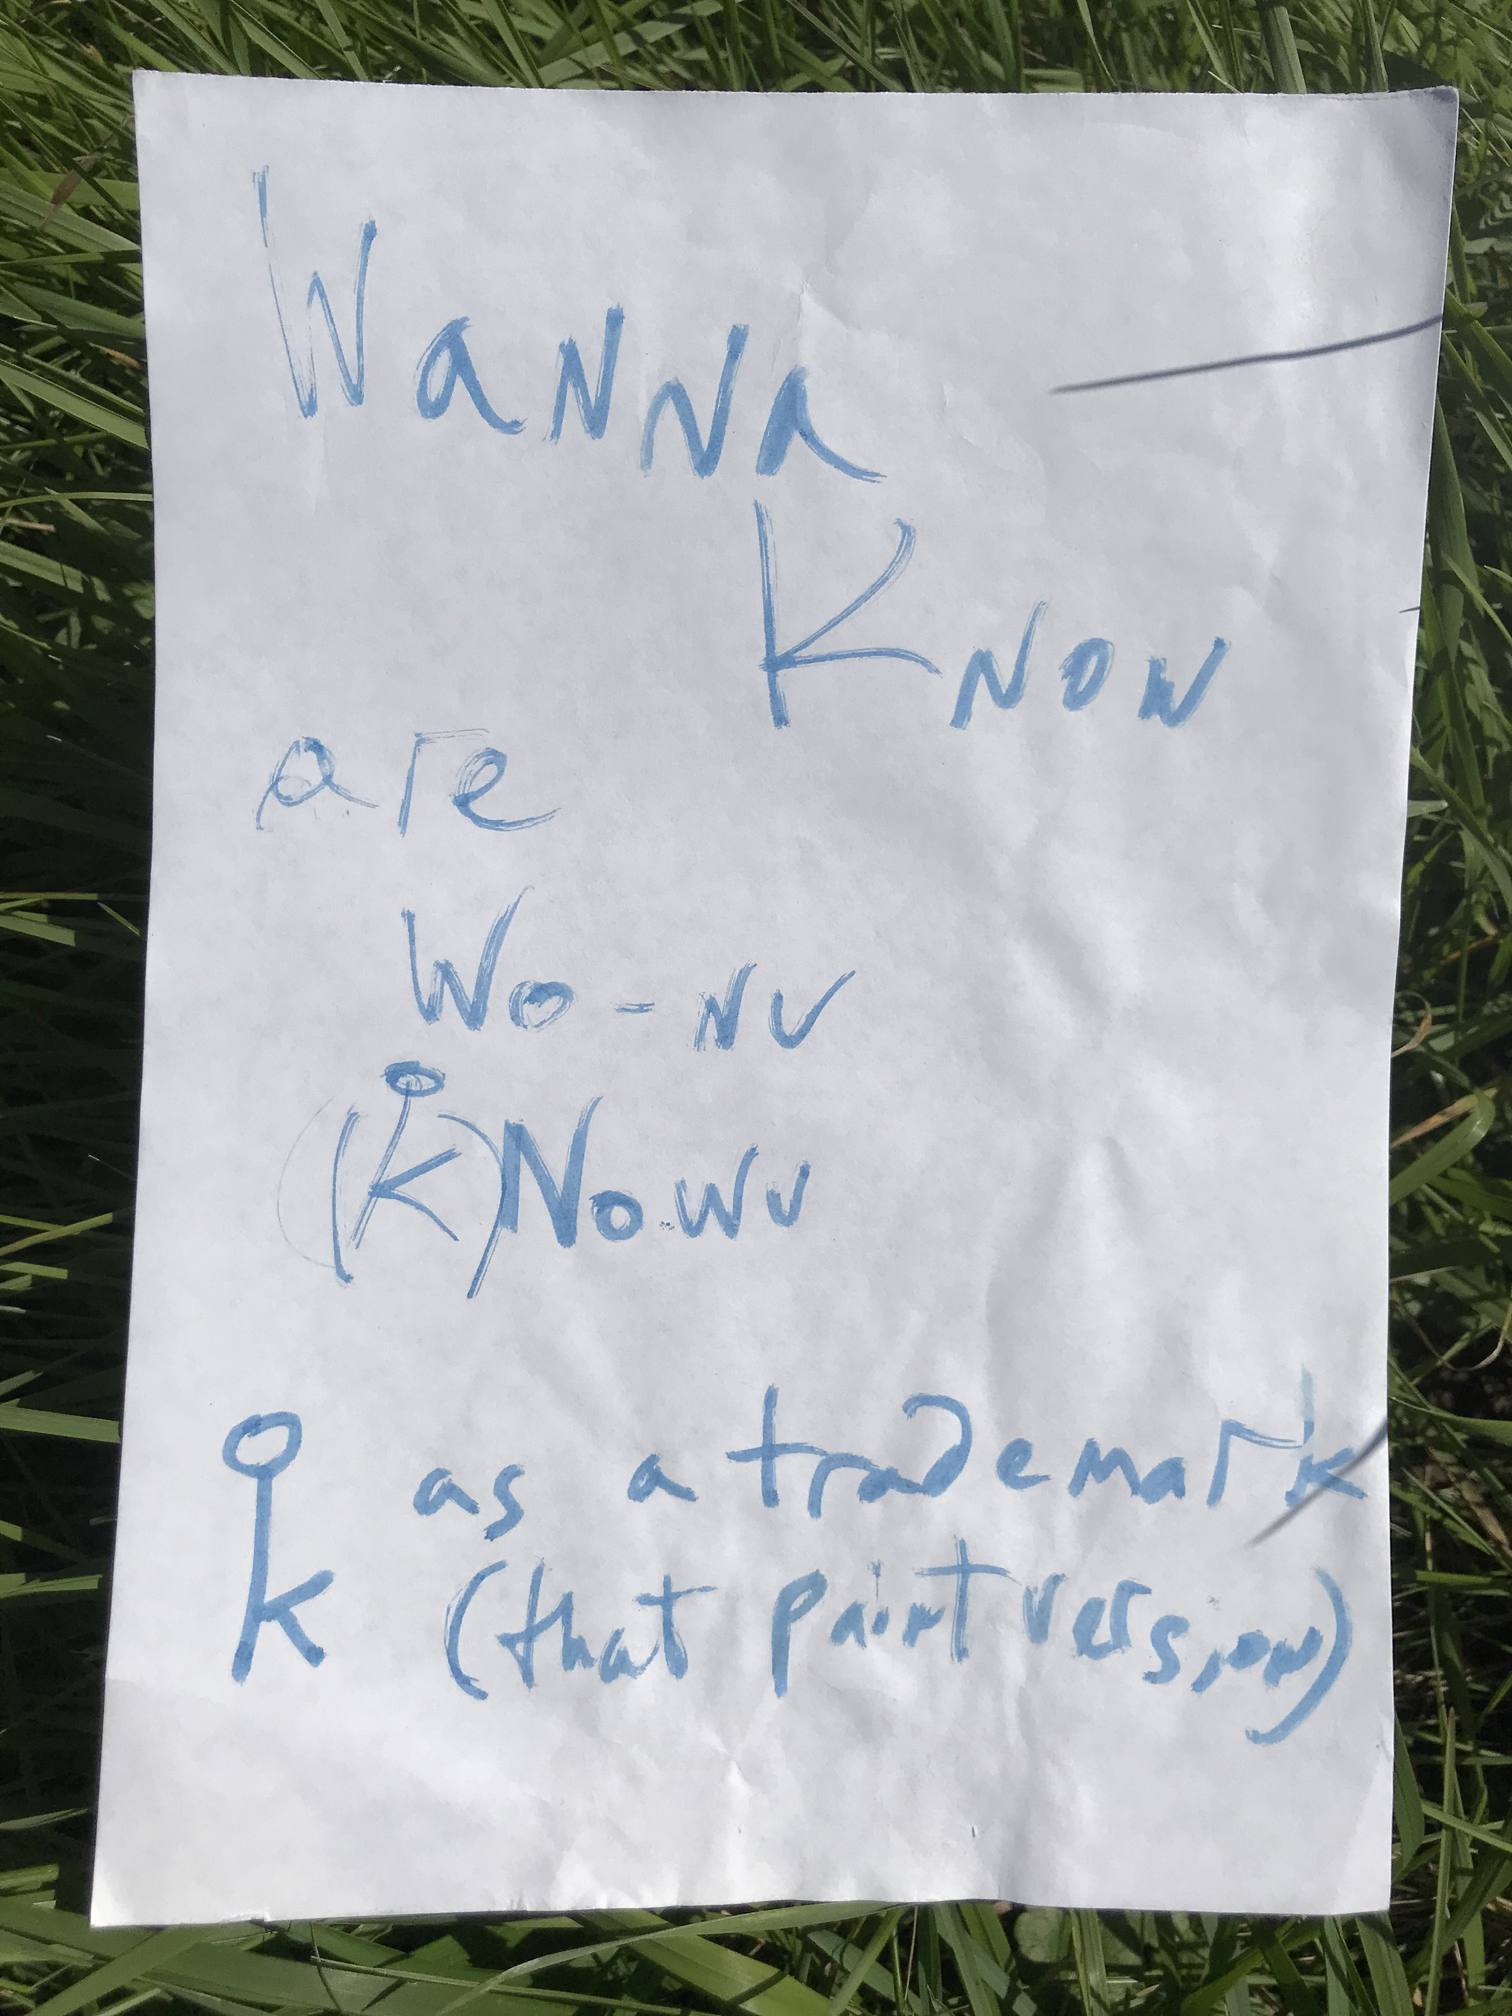 Wanna
Know
are
Wo-nu
(k)Nowu
k as a trademark
(that paint version)